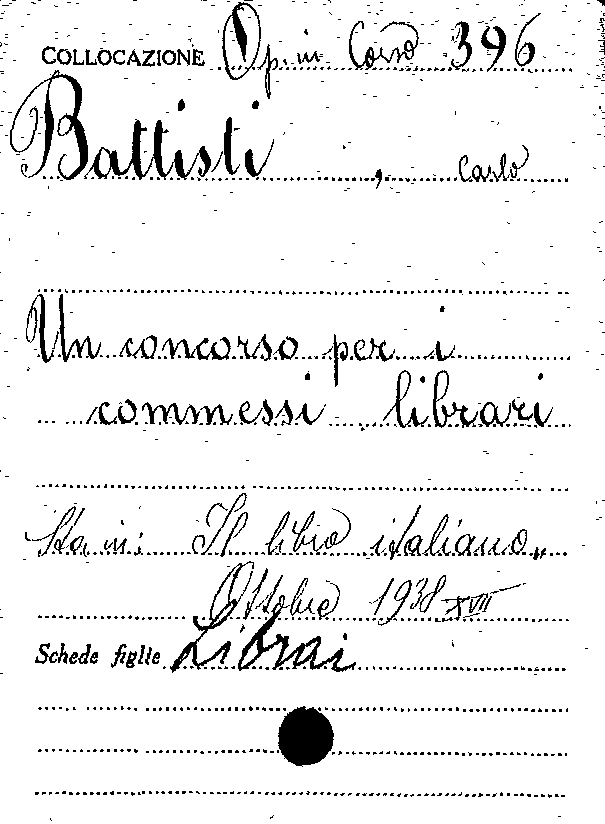 COLLOCAZIONE Op. in Corso 396
Battisti, Carlo
Un concorso per i
commessi librari
Sta in: Il libro italiano„
Ottobre 1938 XVII
Schede figlie Librai